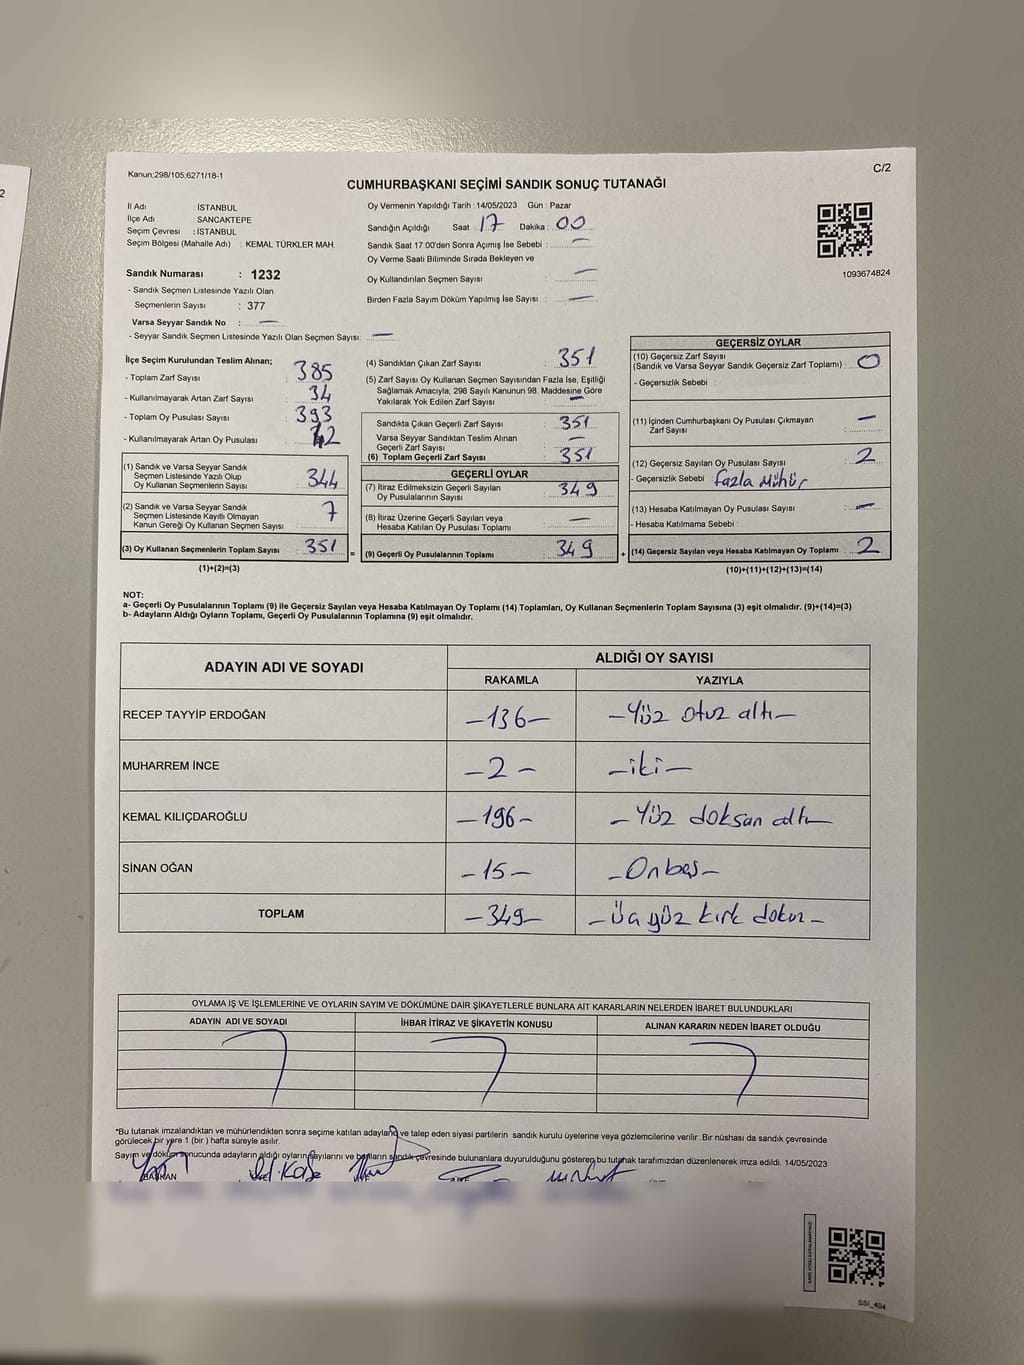 Kanun;298/105,6271/18-1
C/2
CUMHURBAŞKANI SEÇİMİ SANDIK SONUÇ TUTANAĞI
İl Adı : İSTANBUL
İlçe Adı : SANCAKTEPE
Seçim Çevresi : İSTANBUL
Seçim Bölgesi (Mahalle Adı) : KEMAL TÜRKLER MAH.
Oy Vermenin Yapıldığı Tarih : 14/05/2023 Gün : Pazar
Sandığın Açıldığı Saat : 17 Dakika : 00
Sandık Saat 17.00'den Sonra Açımış İse Sebebi : —
Oy Verme Saati Bitiminde Sırada Bekleyen ve
Oy Kullandırılan Seçmen Sayısı : —
Birden Fazla Sayım Döküm Yapılmış İse Sayısı : —
1093674824
Sandık Numarası : 1232
- Sandık Seçmen Listesinde Yazılı Olan
Seçmenlerin Sayısı : 377
Varsa Seyyar Sandık No : —
- Seyyar Sandık Seçmen Listesinde Yazılı Olan Seçmen Sayısı: —
İlçe Seçim Kurulundan Teslim Alınan;
- Toplam Zarf Sayısı : 385
- Kullanılmayarak Artan Zarf Sayısı : 34
- Toplam Oy Pusulası Sayısı : 393
- Kullanılmayarak Artan Oy Pusulası : 42
(1) Sandık ve Varsa Seyyar Sandık
Seçmen Listesinde Yazılı Olup
Oy Kullanan Seçmenlerin Sayısı : 344
(2) Sandık ve Varsa Seyyar Sandık
Seçmen Listesinde Kayıtlı Olmayan
Kanun Gereği Oy Kullanan Seçmen Sayısı : 7
(3) Oy Kullanan Seçmenlerin Toplam Sayısı : 351 =
(1)+(2)=(3)
(4) Sandıktan Çıkan Zarf Sayısı : 351
(5) Zarf Sayısı Oy Kullanan Seçmen Sayısından Fazla İse, Eşitliği
Sağlamak Amacıyla, 298 Sayılı Kanunun 98. Maddesine Göre
Yakılarak Yok Edilen Zarf Sayısı : —
Sandıkta Çıkan Geçerli Zarf Sayısı : 351
Varsa Seyyar Sandıktan Teslim Alınan
Geçerli Zarf Sayısı : —
(6) Toplam Geçerli Zarf Sayısı : 351
GEÇERLİ OYLAR
(7) İtiraz Edilmeksizin Geçerli Sayılan
Oy Pusulalarının Sayısı : 349
(8) İtiraz Üzerine Geçerli Sayılan veya
Hesaba Katılan Oy Pusulası Toplamı : —
(9) Geçerli Oy Pusulalarının Toplamı : 349 +
GEÇERSİZ OYLAR
(10) Geçersiz Zarf Sayısı
(Sandık ve Varsa Seyyar Sandık Geçersiz Zarf Toplamı) : 0
- Geçersizlik Sebebi :
(11) İçinden Cumhurbaşkanı Oy Pusulası Çıkmayan
Zarf Sayısı : —
(12) Geçersiz Sayılan Oy Pusulası Sayısı : 2
- Geçersizlik Sebebi : fazla mühür
(13) Hesaba Katılmayan Oy Pusulası Sayısı : —
- Hesaba Katılmama Sebebi :
(14) Geçersiz Sayılan veya Hesaba Katılmayan Oy Toplamı : 2
(10)+(11)+(12)+(13)=(14)
NOT:
a- Geçerli Oy Pusulalarının Toplamı (9) ile Geçersiz Sayılan veya Hesaba Katılmayan Oy Toplamı (14) Toplamları, Oy Kullanan Seçmenlerin Toplam Sayısına (3) eşit olmalıdır. (9)+(14)=(3)
b- Adayların Aldığı Oyların Toplamı, Geçerli Oy Pusulalarının Toplamına (9) eşit olmalıdır.
ADAYIN ADI VE SOYADI ALDIĞI OY SAYISI
RAKAMLA YAZIYLA
RECEP TAYYİP ERDOĞAN –136– –Yüz otuz altı–
MUHARREM İNCE –2– –iki–
KEMAL KILIÇDAROĞLU –196– –Yüz doksan altı–
SİNAN OĞAN –15– –Onbeş–
TOPLAM –349– –Üç yüz kırk dokuz–
OYLAMA İŞ VE İŞLEMLERİNE VE OYLARIN SAYIM VE DÖKÜMÜNE DAİR ŞİKAYETLERLE BUNLARA AİT KARARLARIN NELERDEN İBARET BULUNDUKLARI
ADAYIN ADI VE SOYADI İHBAR İTİRAZ VE ŞİKAYETİN KONUSU ALINAN KARARIN NEDEN İBARET OLDUĞU
*Bu tutanak imzalandıktan ve mühürlendikten sonra seçime katılan adaylar ve talep eden siyasi partilerin sandık kurulu üyelerine veya gözlemcilerine verilir .Bir nüshası da sandık çevresinde
görülecek bir yere 1 (bir ) hafta süreyle asılır.
Sayım ve döküm sonucunda adayların aldığı oyların sayılarını ve bunların sandık çevresinde bulunanlara duyurulduğunu gösteren bu tutanak tarafımızdan düzenlenerek imza edildi. 14/05/2023
BAŞKAN
GSI_404